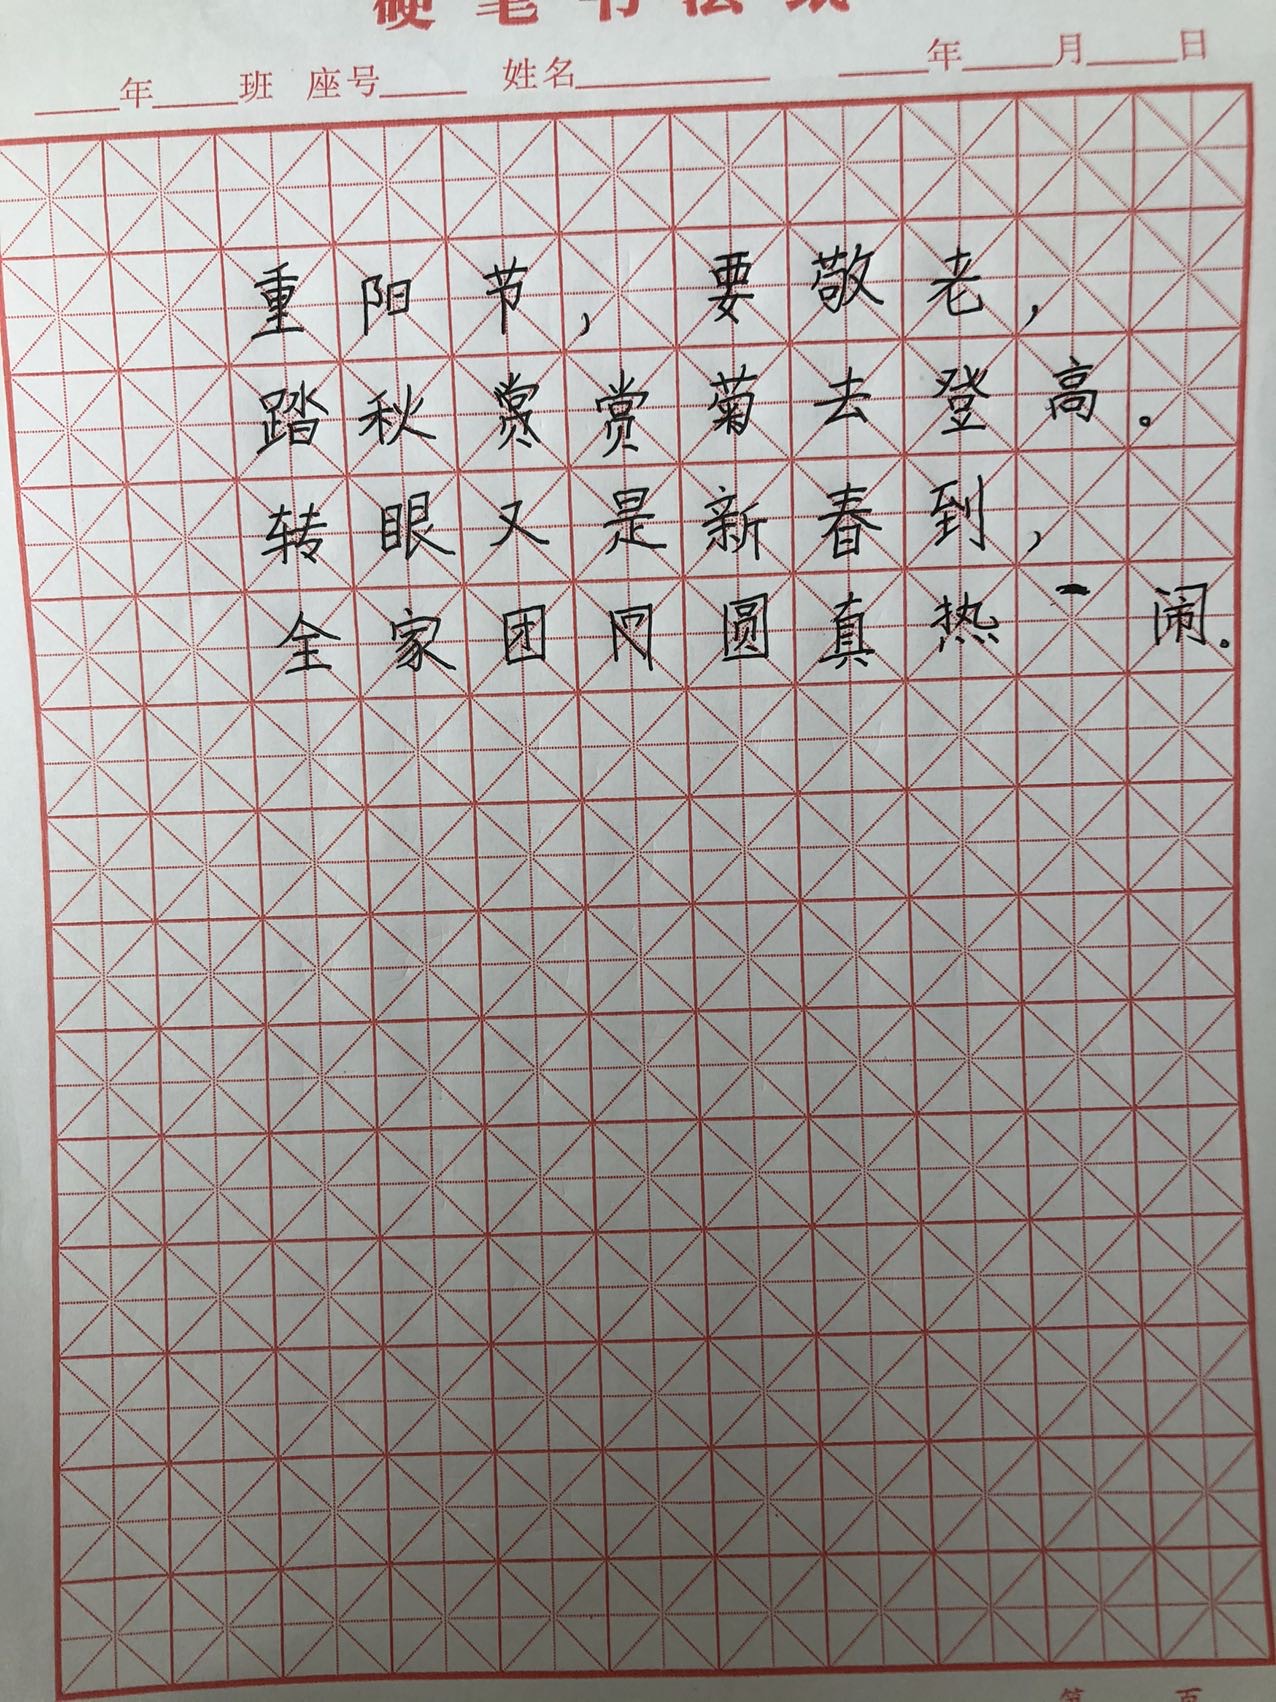 硬笔书法纸
____年____班 座号____ 姓名________ ____年____月____日
重阳节，要敬老，
踏秋赏赏菊去登高。
转眼又是新春到，
全家团圆真热闹。
第 页